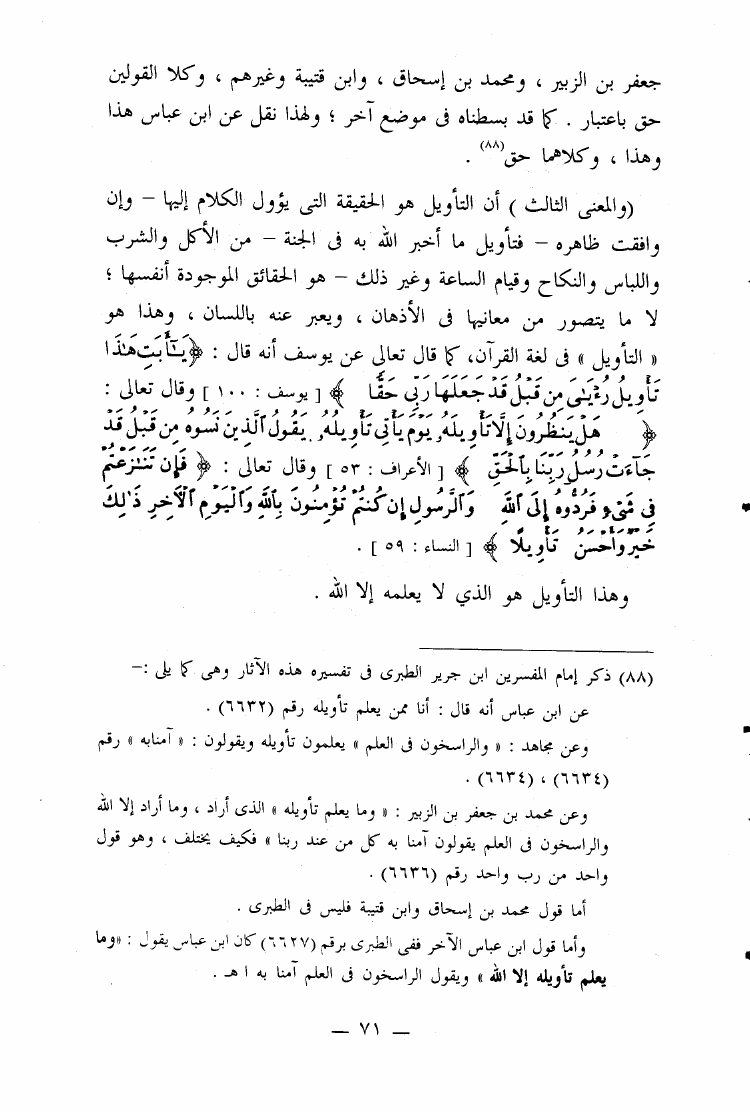 جعفر بن الزبير ، ومحمد بن إسحاق ، وابن قتيبة وغيرهم ، وكلا القولين
حق باعتبار . كما قد بسطناه فى موضع آخر ؛ ولهذا نقل عن ابن عباس هذا
وهذا ، وكلاهما حق(٨٨) .
(والمعنى الثالث ) أن التأويل هو الحقيقة التى يؤول الكلام إليها – وإن
وافقت ظاهره – فتأويل ما أخبر الله به فى الجنة – من الأكل والشرب
واللباس والنكاح وقيام الساعة وغير ذلك – هو الحقائق الموجودة أنفسها ؛
لا ما يتصور من معانيها فى الأذهان ، ويعبر عنه باللسان ، وهذا هو
« التأويل » فى لغة القرآن، كما قال تعالى عن يوسف أنه قال : ﴿ يَـٰٓأَبَتِ هَـٰذَا
تَأْوِيلُ رُءْيَـٰىَ مِن قَبْلُ قَدْ جَعَلَهَا رَبِّى حَقًّا ﴾ [ يوسف : ١٠٠ ] وقال تعالى :
﴿ هَلْ يَنظُرُونَ إِلَّا تَأْوِيلَهُۥ يَوْمَ يَأْتِى تَأْوِيلُهُۥ يَقُولُ ٱلَّذِينَ نَسُوهُ مِن قَبْلُ قَدْ
جَآءَتْ رُسُلُ رَبِّنَا بِٱلْحَقِّ ﴾ [ الأعراف : ٥٣ ] وقال تعالى : ﴿ فَإِن تَنَـٰزَعْتُمْ
فِى شَىْءٍ فَرُدُّوهُ إِلَى ٱللَّهِ وَٱلرَّسُولِ إِن كُنتُمْ تُؤْمِنُونَ بِٱللَّهِ وَٱلْيَوْمِ ٱلْأَخِرِ ذَٰلِكَ
خَيْرٌ وَأَحْسَنُ تَأْوِيلًا ﴾ [ النساء : ٥٩ ] .
وهذا التأويل هو الذي لا يعلمه إلا الله .
(٨٨) ذكر إمام المفسرين ابن جرير الطبرى فى تفسيره هذه الآثار وهى كما يلى :–
عن ابن عباس أنه قال : أنا ممن يعلم تأويله رقم (٦٦٣٢) .
وعن مجاهد : « والراسخون فى العلم » يعلمون تأويله ويقولون : « آمنابه » رقم
(٦٦٣٤) ، (٦٦٣٤) .
وعن محمد بن جعفر بن الزبير : « وما يعلم تأويله » الذى أراد ، وما أراد إلا الله
والراسخون فى العلم يقولون آمنا به كل من عند ربنا » فكيف يختلف ، وهو قول
واحد من رب واحد رقم (٦٦٣٦) .
أما قول محمد بن إسحاق وابن قتيبة فليس فى الطبرى .
وأما قول ابن عباس الآخر ففى الطبرى برقم (٦٦٢٧) كان ابن عباس يقول : «وما
يعلم تأويله إلا الله » ويقول الراسخون فى العلم آمنا به ا هـ .
— ٧١ —